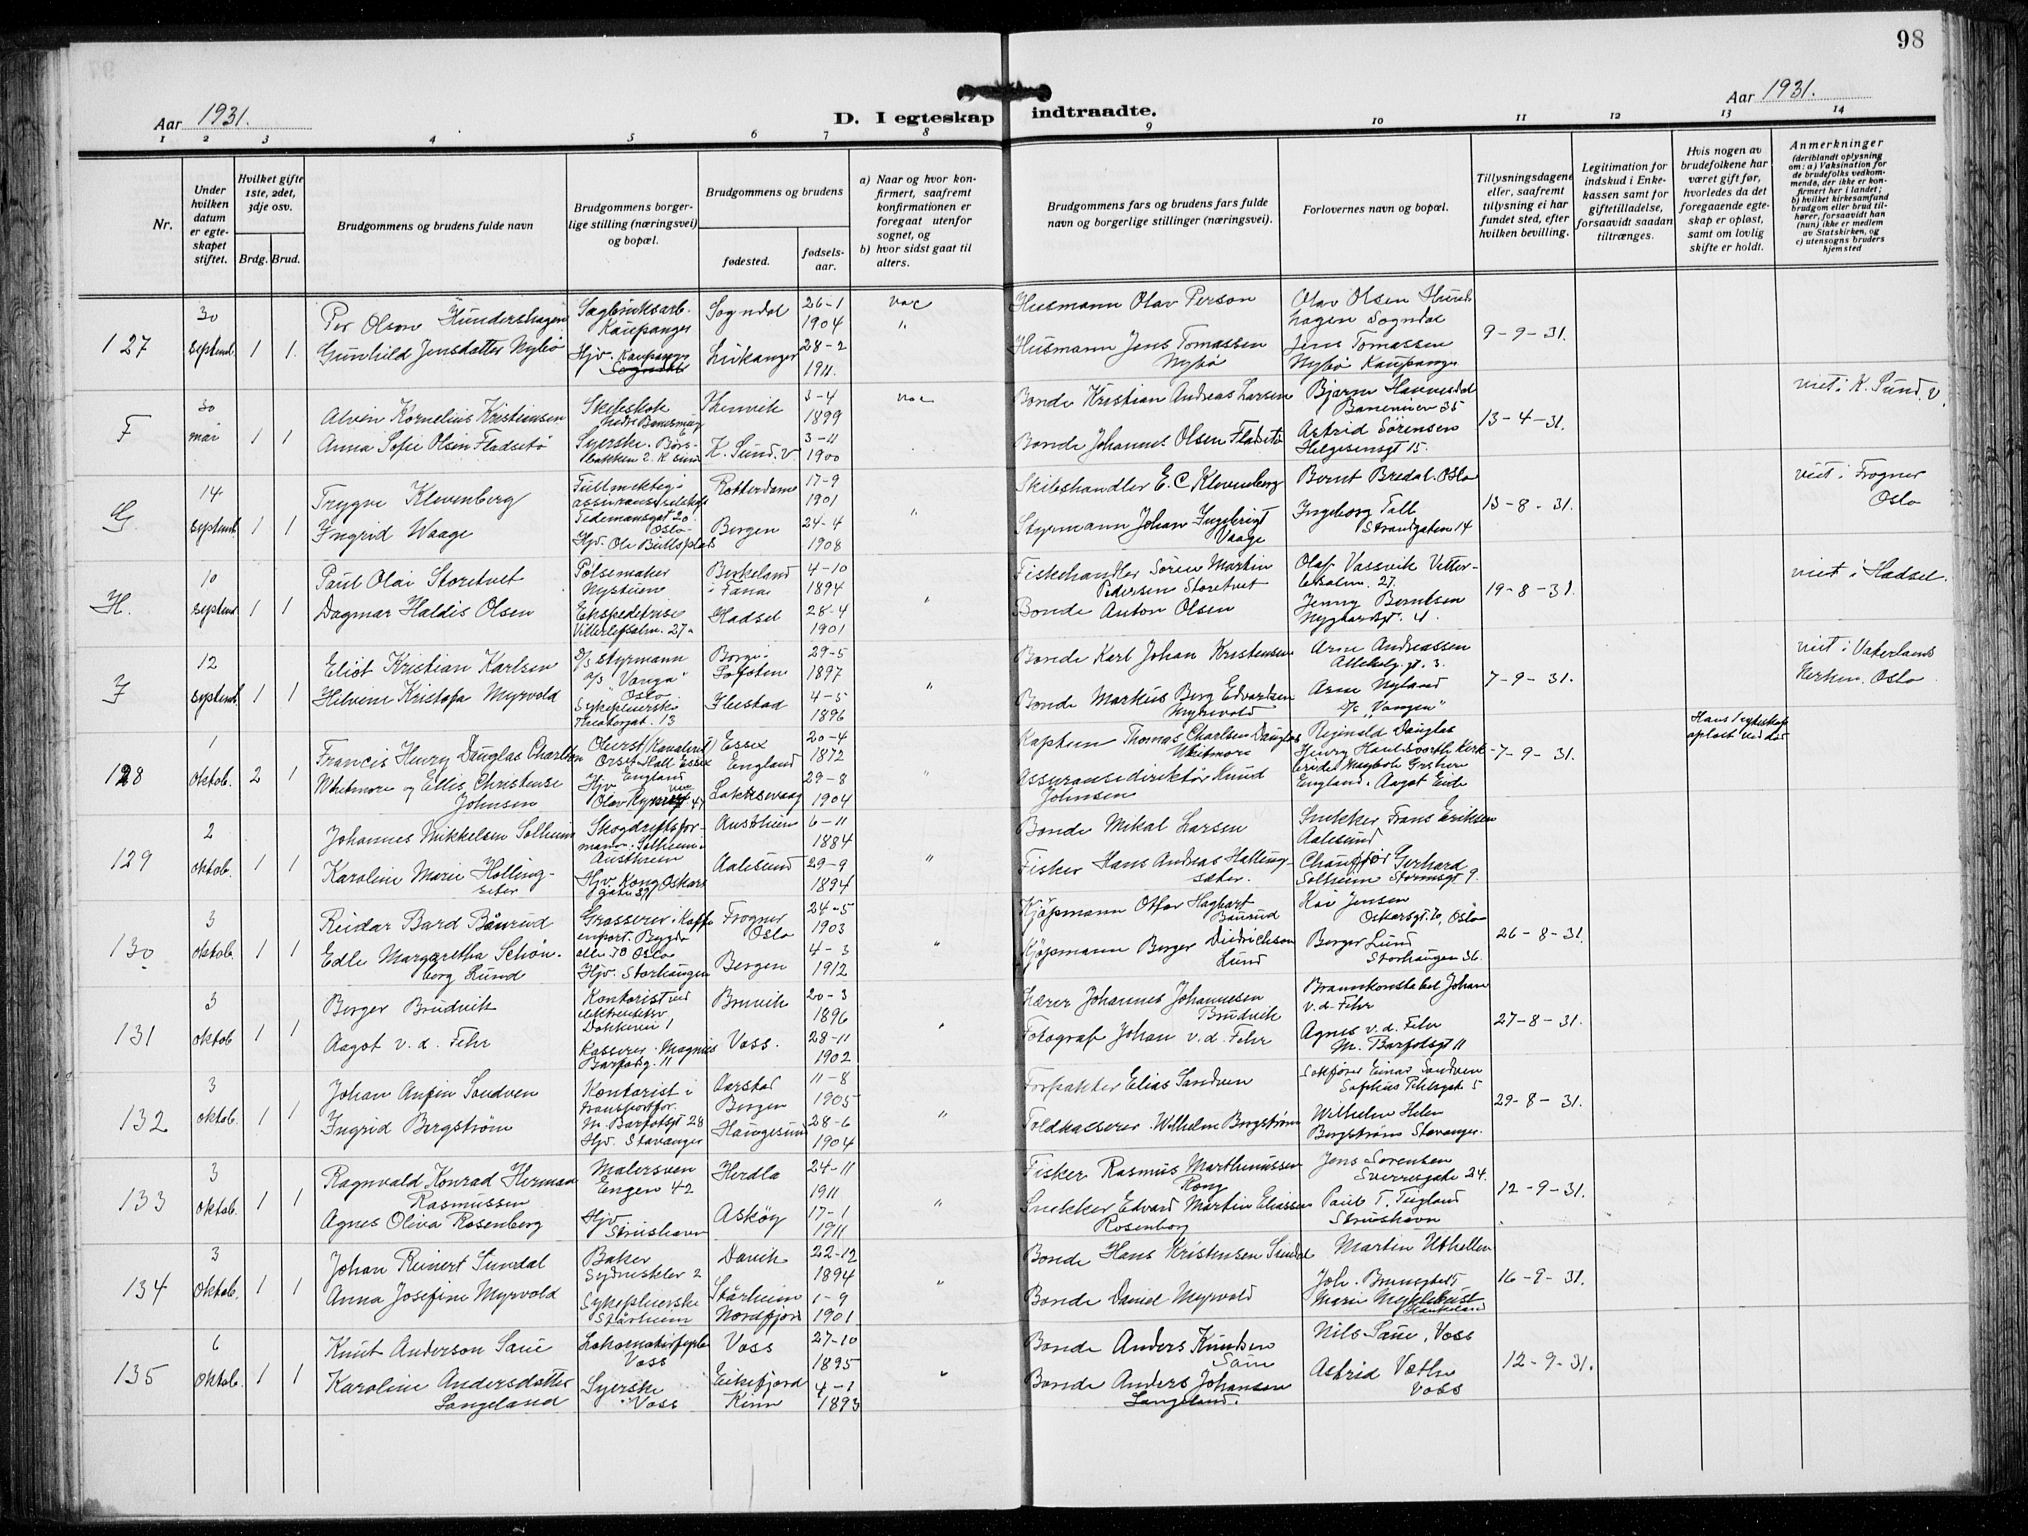 98
Aar 1931.
D. I egteskap indtraadte.
Aar 1931.
1 2 3 4 5 6 7 8 9 10 11 12 13 14
Nr.
Under hvilken datum er egteskapet stiftet.
Hvilket gifte 1ste, 2det, 3dje osv.
Brdg. Brud.
Brudgommens og brudens fulde navn
Brudgommens borgerlige stilling (næringsvei) og bopæl.
Brudgommens og brudens
fødested.
fødselsaar.
a) Naar og hvor konfirmert, saafremt konfirmationen er foregaat utenfor sognet, og
b) hvor sidst gaat til alters.
Brudgommens fars og brudens fars fulde navn og borgerlige stillinger (næringsvei).
Forlovernes navn og bopæl.
Tillysningsdagene eller, saafremt tillysning ei har fundet sted, efter hvilken bevilling.
Legitimation for indskud i Enkekassen samt for giftetilladelse, forsaavidt saadan tiltrænges.
Hvis nogen av brudefolkene har været gift før, hvorledes da det foregaaende egteskap er opløst, samt om lovlig skifte er holdt.
Anmerkninger
(deriblandt oplysning om: a) Vaksination for de brudefolks vedkommende, der ikke er konfirmert her i landet; b) hvilket kirkesamfund brudgom eller brud tilhører, forsaavidt han (hun) ikke er medlem av Statskirken, og c) utensogns bruders hjemsted
127 30 septemb. 1 1
Per Olsen Hundershagen Sagbruksarb. Kaupanger Sogndal 26-1 1904 vac
Gunhild Jensdatter Nybø Hjv. Kaupanger Leikanger 28-2 1911
Husmann Olav Person
Husmann Jens Tomassen Nybø
Olav Olsen Hundshagen Sogndal
Jens Tomassen Nybø Kaupanger
9-9-31.
F 30 mai 1 1
Alven Kornelius Kristiansen 3-4 1899 vac
Anna Sofie Olsen Fladsetø Syerske. K. Sund. V. 3-11 1900
Bonde Kristian Andreas Larsen
Bonde Johannes Olsen Fladsetø
Astrid Sørensen Helgesensgt 15.
13-4-31.
viet i K. Sund. V.
G. 14 septemb. 1 1
Trygve Klevenberg Tidemansgt 20 Oslo Rotterdam 17-9 1901 "
Ingrid Waage Hjv. Ole Bullsplads Bergen 24-4 1908
Skibshandler E. C. Klevenberg
Styrmann Johan Ingebrigt Vaage
Bernt Bredal. Oslo
Ingeborg Tall Strandgaten 14
13-8-31.
viet i Frogner Oslo
H. 10 septemb. 1 1
Paul Olai Storetvet Pølsemaker Nystuen Birkeland i Fana 4-10 1894 "
Dagmar Haldis Olsen Ekspeditrise Hadsel 28-4 1901
Fiskehandler Søren Martin Pedersen Storetvet
Bonde Anton Olsen
Olaf Vassvik
Jenny Berntsen Nygaardsgt. 4.
19-8-31.
viet i Hadsel.
I 12 septemb. 1 1
Eliot Kristian Karlsen styrmann Oslo Borge i Lofoten 29-5 1897 "
Helvine Kristofa Myrvold Sykepleierske Teatergat. 13 4-5 1896
Bonde Karl Johan Kristensen
Bonde Markus Berg Edvardsen Myrvold
Arne Andreassen
Arne Nyland "Vangen"
7-9-31.
viet i Vaterlands Kirken. Oslo
128 1 oktob. 2 1
Francis Henry Douglas Charlton Whitmore og Ellis Christense Johnsen
Oberst (Kavaleriet) Orset Hall Essex England Essex England 20-4 1872 "
Hjv Laksevaag 29-8 1904
Kaptein Thomas Charlsen Douglas Whitmore
Assuransedirektør Knud Johnsen
Reginald Douglas England. Aagot Eide
7-9-31.
Hans 1 egteskap opløst ved død
129 2 oktob. 1 1
Johannes Mikkelsen Solheim Skogdriftsformann. Solheim. Austrheim Austrheim 6-11 1884 "
Karoline Marie Hollingseter Hjv. Kong Oskars gate Aalesund 29-9 1894
Bonde Mikal Larsen
Fisker Hans Andreas Hallingsæter.
Snekker Frans Eriksen Aalesund
Chauffør Gerhard Solheim Stormsgt 9.
130 3 oktob. 1 1
Reidar Bard Båurud Grosserer i Kaffe Bygdø alle Oslo Frogner Oslo 24-5 1903 "
Edle Margaretha Schönberg Lund Hjv. Storhaugen Bergen 4-3 1912
Kjøpmann Otter Hagbart Baurud
Kjøpmann Berger Diedrichson Lund
Kai Jensen Oskarsgt. 70, Oslo
Berger Lund Storhaugen 36.
26-8-31.
131 3 oktob 1 1
Berger Brudvik Kontorist ved Dokkeveien 1 Bruvik 20-3 1896 "
Aagot v. d. Fehr Kasserer. Magnus Barfodsg. 11 Voss. 28-11 1902
Lærer Johannes Johannesen Brudvik
Fotograf Johan v. d. Fehr
Brannkonstabel Johan v. d. Fehr
Agnes v. d. Fehr M. Barfodsgt 11
27-8-31.
132 3 oktob. 1 1
Johan Anfin Sandven Kontorist i transportfor. M. Barfotsgt 28 Aarstad Bergen 11-8 1905 "
Ingrid Bergstrøm Hjv. Stavanger Haugesund 28-6 1904
Forpakter Elias Sandven
Toldkasserer. Wilhelm Bergstrøm
Sakfører Einar Sandven Sophus Pihlsgate 5
Wilhelm Helm Bergstrøm Stavanger.
29-8-31.
133 3 oktob. 1 1
Ragnvald Konrad Herman Rasmussen Malersven Engen 42 Herdla 24-11 1911 "
Agnes Oliva Rosenberg Hjv Strushavn Askøy 17-1 1911
Fisker Rasmus Marthinussen Rong
Snekker Edvard Martin Eliassen Rosenberg
Jens Sørensen Sverresgate 24.
Paul T. Tugland Strushavn
12-9-31.
134 3 oktob. 1 1
Johan Reinert Sundal Baker Sydneskler 2 Davik 22-12 1894 "
Anna Josefine Myrvold Sykepleierske Stårheim Stårheim Nordfjord 1-9 1901
Bonde Hans Kristensen Sundal
Bonde Daniel Myrvold
Martin Uthellen
Marie Myklebust
16-9-31.
135 6 oktob. 1 1
Knut Anderson Saue Voss Voss 27-10 1895 "
Karoline Andersdatter Langeland Syerske Voss Eikefjord Kinn 4-1 1893
Bonde Anders Knutsen Saue
Bonde Anders Johansen Langeland.
Nils Saue, Voss
Astrid Væthe Voss
12-9-31.